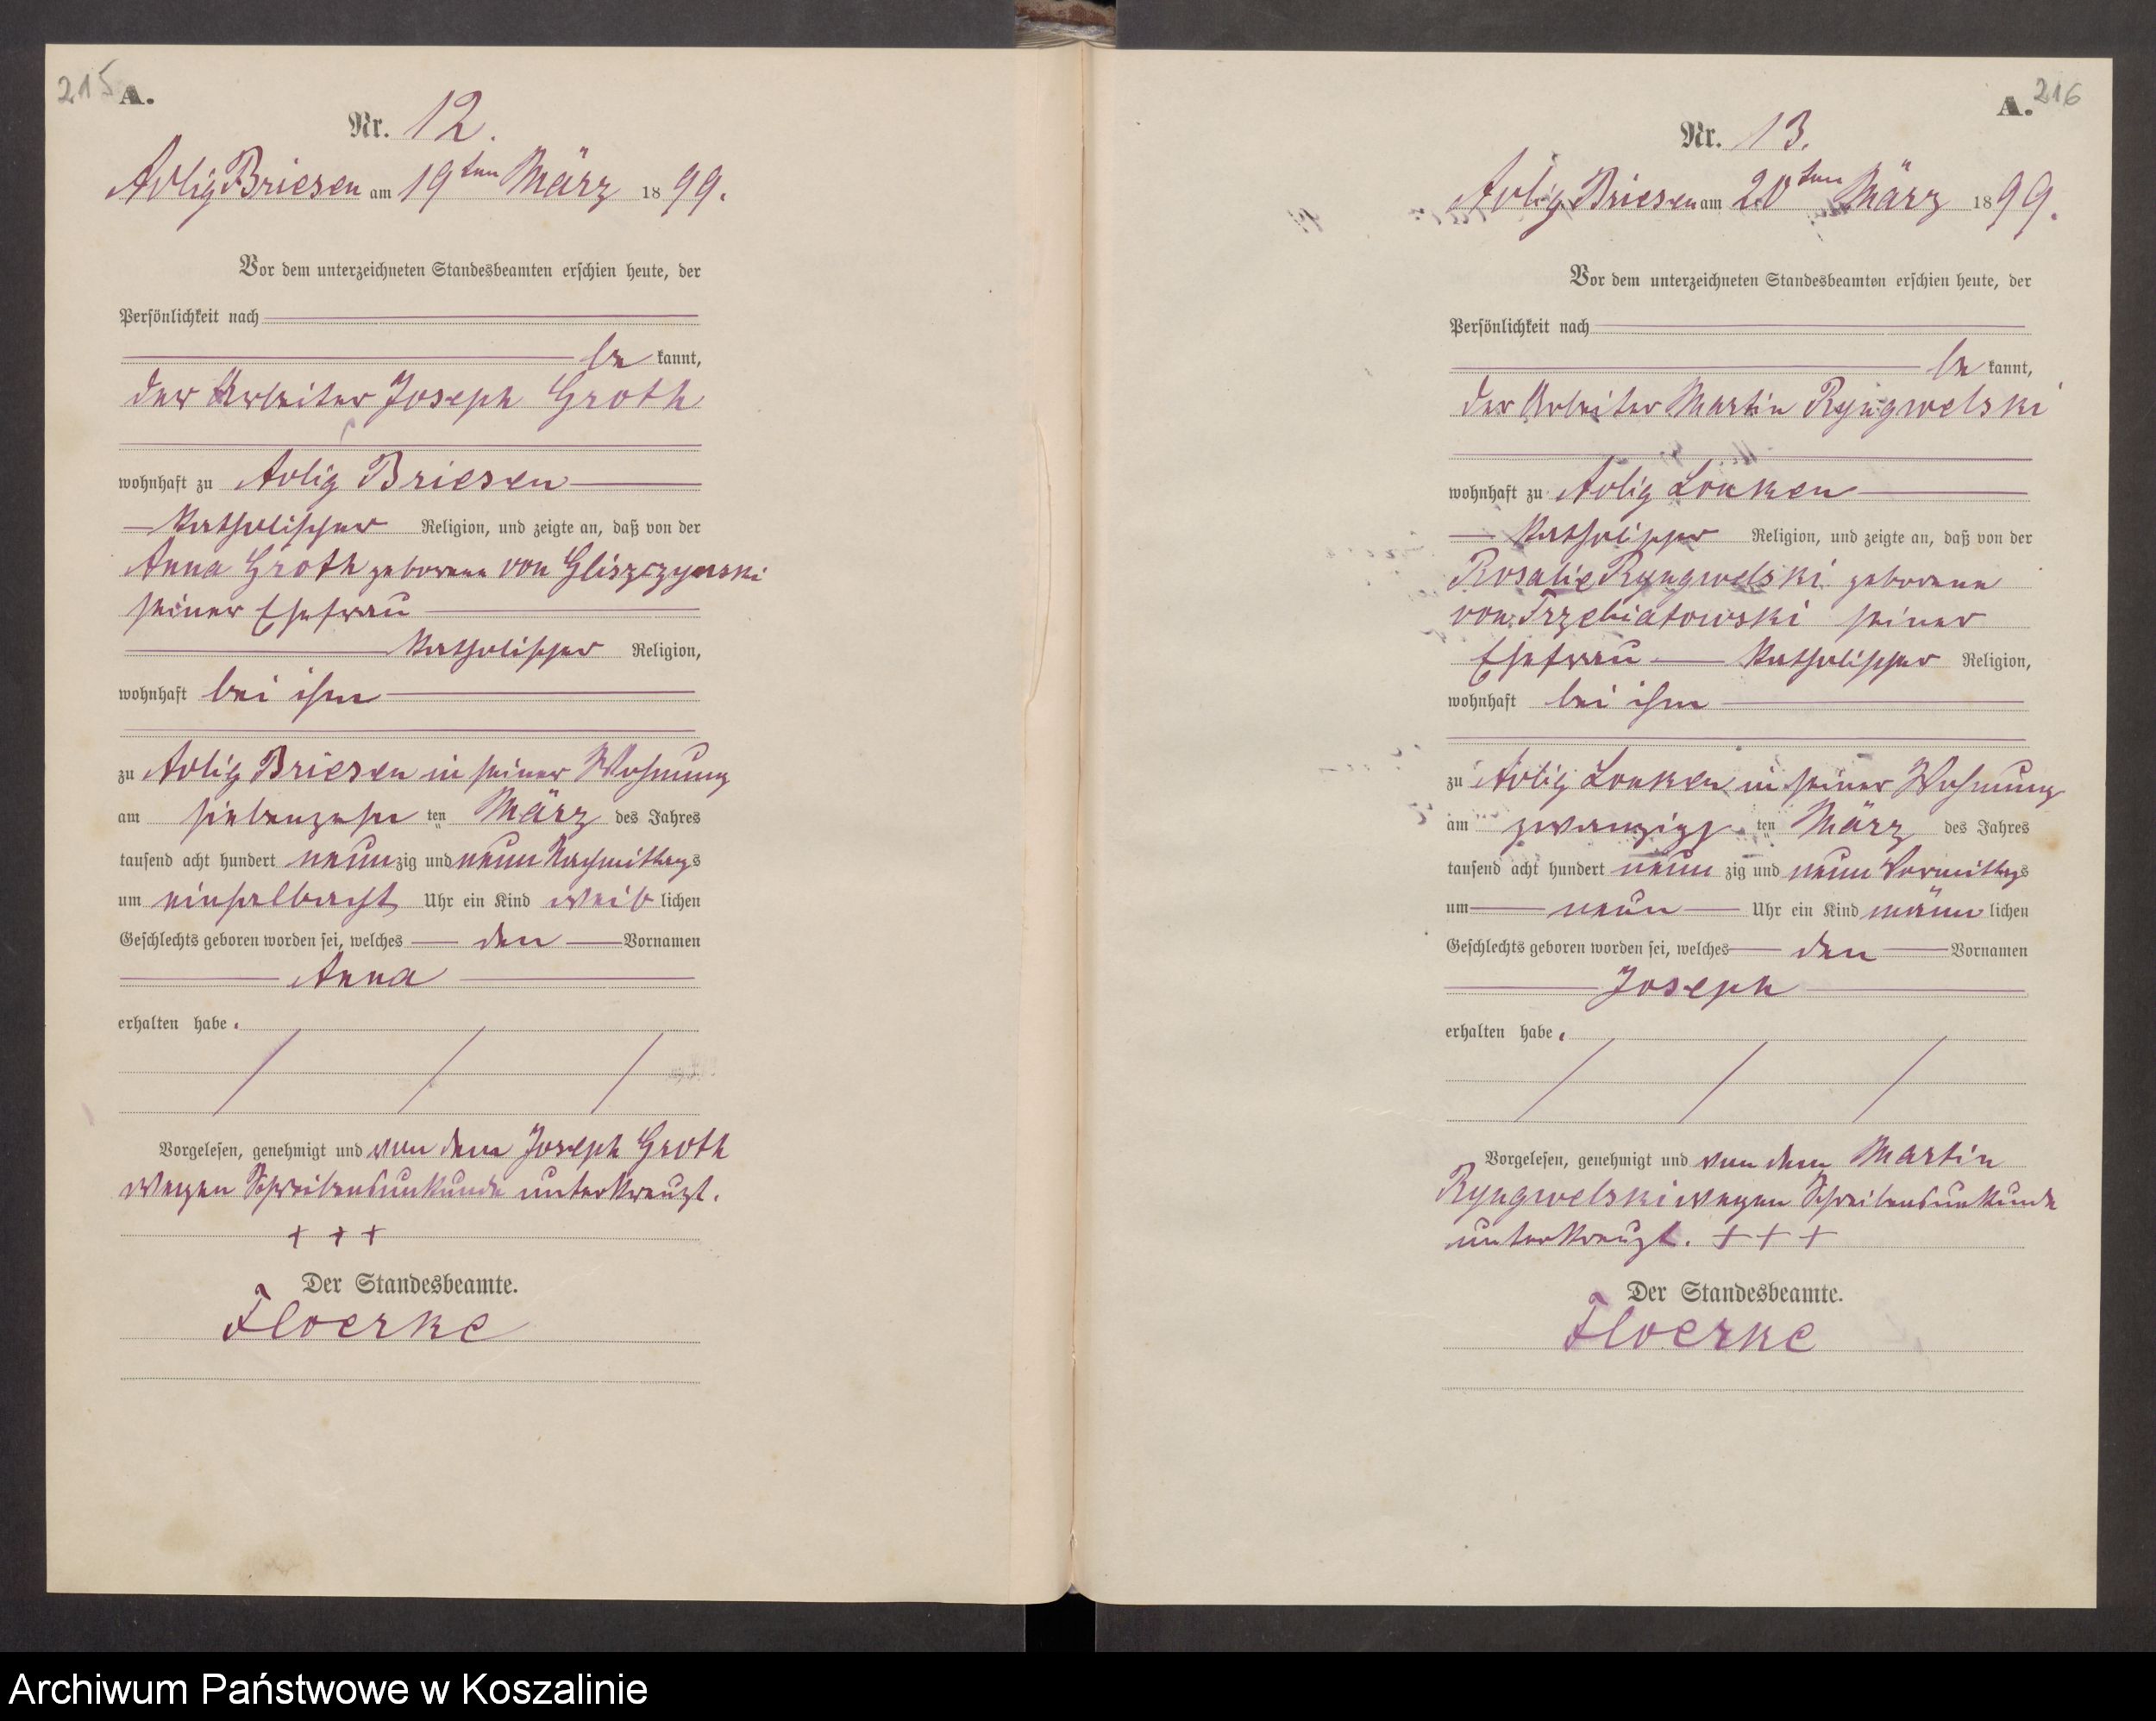 215 A.
Nr. 12.
Adlig Briesen am 19ten März 1899.
Vor dem unterzeichneten Standesbeamten erschien heute, der
Persönlichkeit nach
be kannt,
der Arbeiter Joseph Groth
wohnhaft zu Adlig Briesen
katholischer Religion, und zeigte an, daß von der
Anna Groth geborene von Gliszczynski
seiner Ehefrau
katholischer Religion,
wohnhaft bei ihm
zu Adlig Briesen in seiner Wohnung
am siebenzehn ten März des Jahres
tausend acht hundert neunzig und neun Nachmittags
um einhalbacht Uhr ein Kind weib lichen
Geschlechts geboren worden sei, welches den Vornamen
Anna
erhalten habe.
Vorgelesen, genehmigt und von dem Joseph Groth
wegen Schreibensunkunde unterkreuzt.
+ + +
Der Standesbeamte.
Floerke
A. 216
Nr. 13.
Adlig Briesen am 20ten März 1899.
Vor dem unterzeichneten Standesbeamten erschien heute, der
Persönlichkeit nach
be kannt,
der Arbeiter Martin Ryngwelski
wohnhaft zu Adlig Lonken
katholischer Religion, und zeigte an, daß von der
Rosalie Ryngwelski geborene
von Trzebiatowski seiner
Ehefrau katholischer Religion,
wohnhaft bei ihm
zu Adlig Lonken in seiner Wohnung
am zwanzigs ten März des Jahres
tausend acht hundert neun zig und neun Vormittags
um neun Uhr ein Kind männ lichen
Geschlechts geboren worden sei, welches den Vornamen
Joseph
erhalten habe.
Vorgelesen, genehmigt und von dem Martin
Ryngwelski wegen Schreibensunkunde
unterkreuzt. + + +
Der Standesbeamte.
Floerke
Archiwum Państwowe w Koszalinie